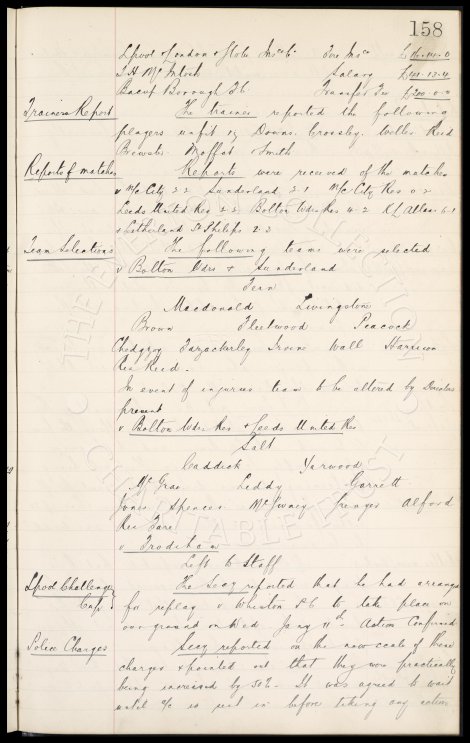 158
Lpool & London & Globe Insce Co. Fire Insce £16-14-0
T. H. McIntosh Salary £101-13-4
Bacup Borough F.C. Transfer Fee £200-0-0
Trainers Report The trainer reported the following
players unfit viz Downs. Crossley. Weller Reid
Brewster. Moffat Smith
Reports of matches Reports were received of the matches
v M/c City 2 2 Sunderland 3 1 M/c City Res 0 2
Leeds United Res 2 2 Bolton Wdrs Res 4-2 6-1
& Litherland St Philips 2-3
Team Selections The following teams were selected
v Bolton Wdrs & Sunderland
Fern
Macdonald Livingstone
Brown Fleetwood Peacock
Chedgzoy Forzackerley Irvine Wall Harrison
Res Reid.
In event of injuries team to be altered by Directors
present
v Bolton Wdrs Res & Leeds United Res
Salt
Caddick Yarwood
McGrae Leddy Garrett
Jones Spencer Grenyer Alford
Res Fare
v Frodsham
Left to Staff
Lpool Challenge Cup The Secy reported that he had arranged
for replay v Whiston P C to take place on
our ground on Wed Jany 11th. Action Confirmed
Police Charges Secy reported on the new scale of these
charges & pointed out that they were practically
being increased by 50%. It was agreed to wait
until a/c is sent in before taking any action
THE EVERTON COLLECTION
CHARITABLE TRUST